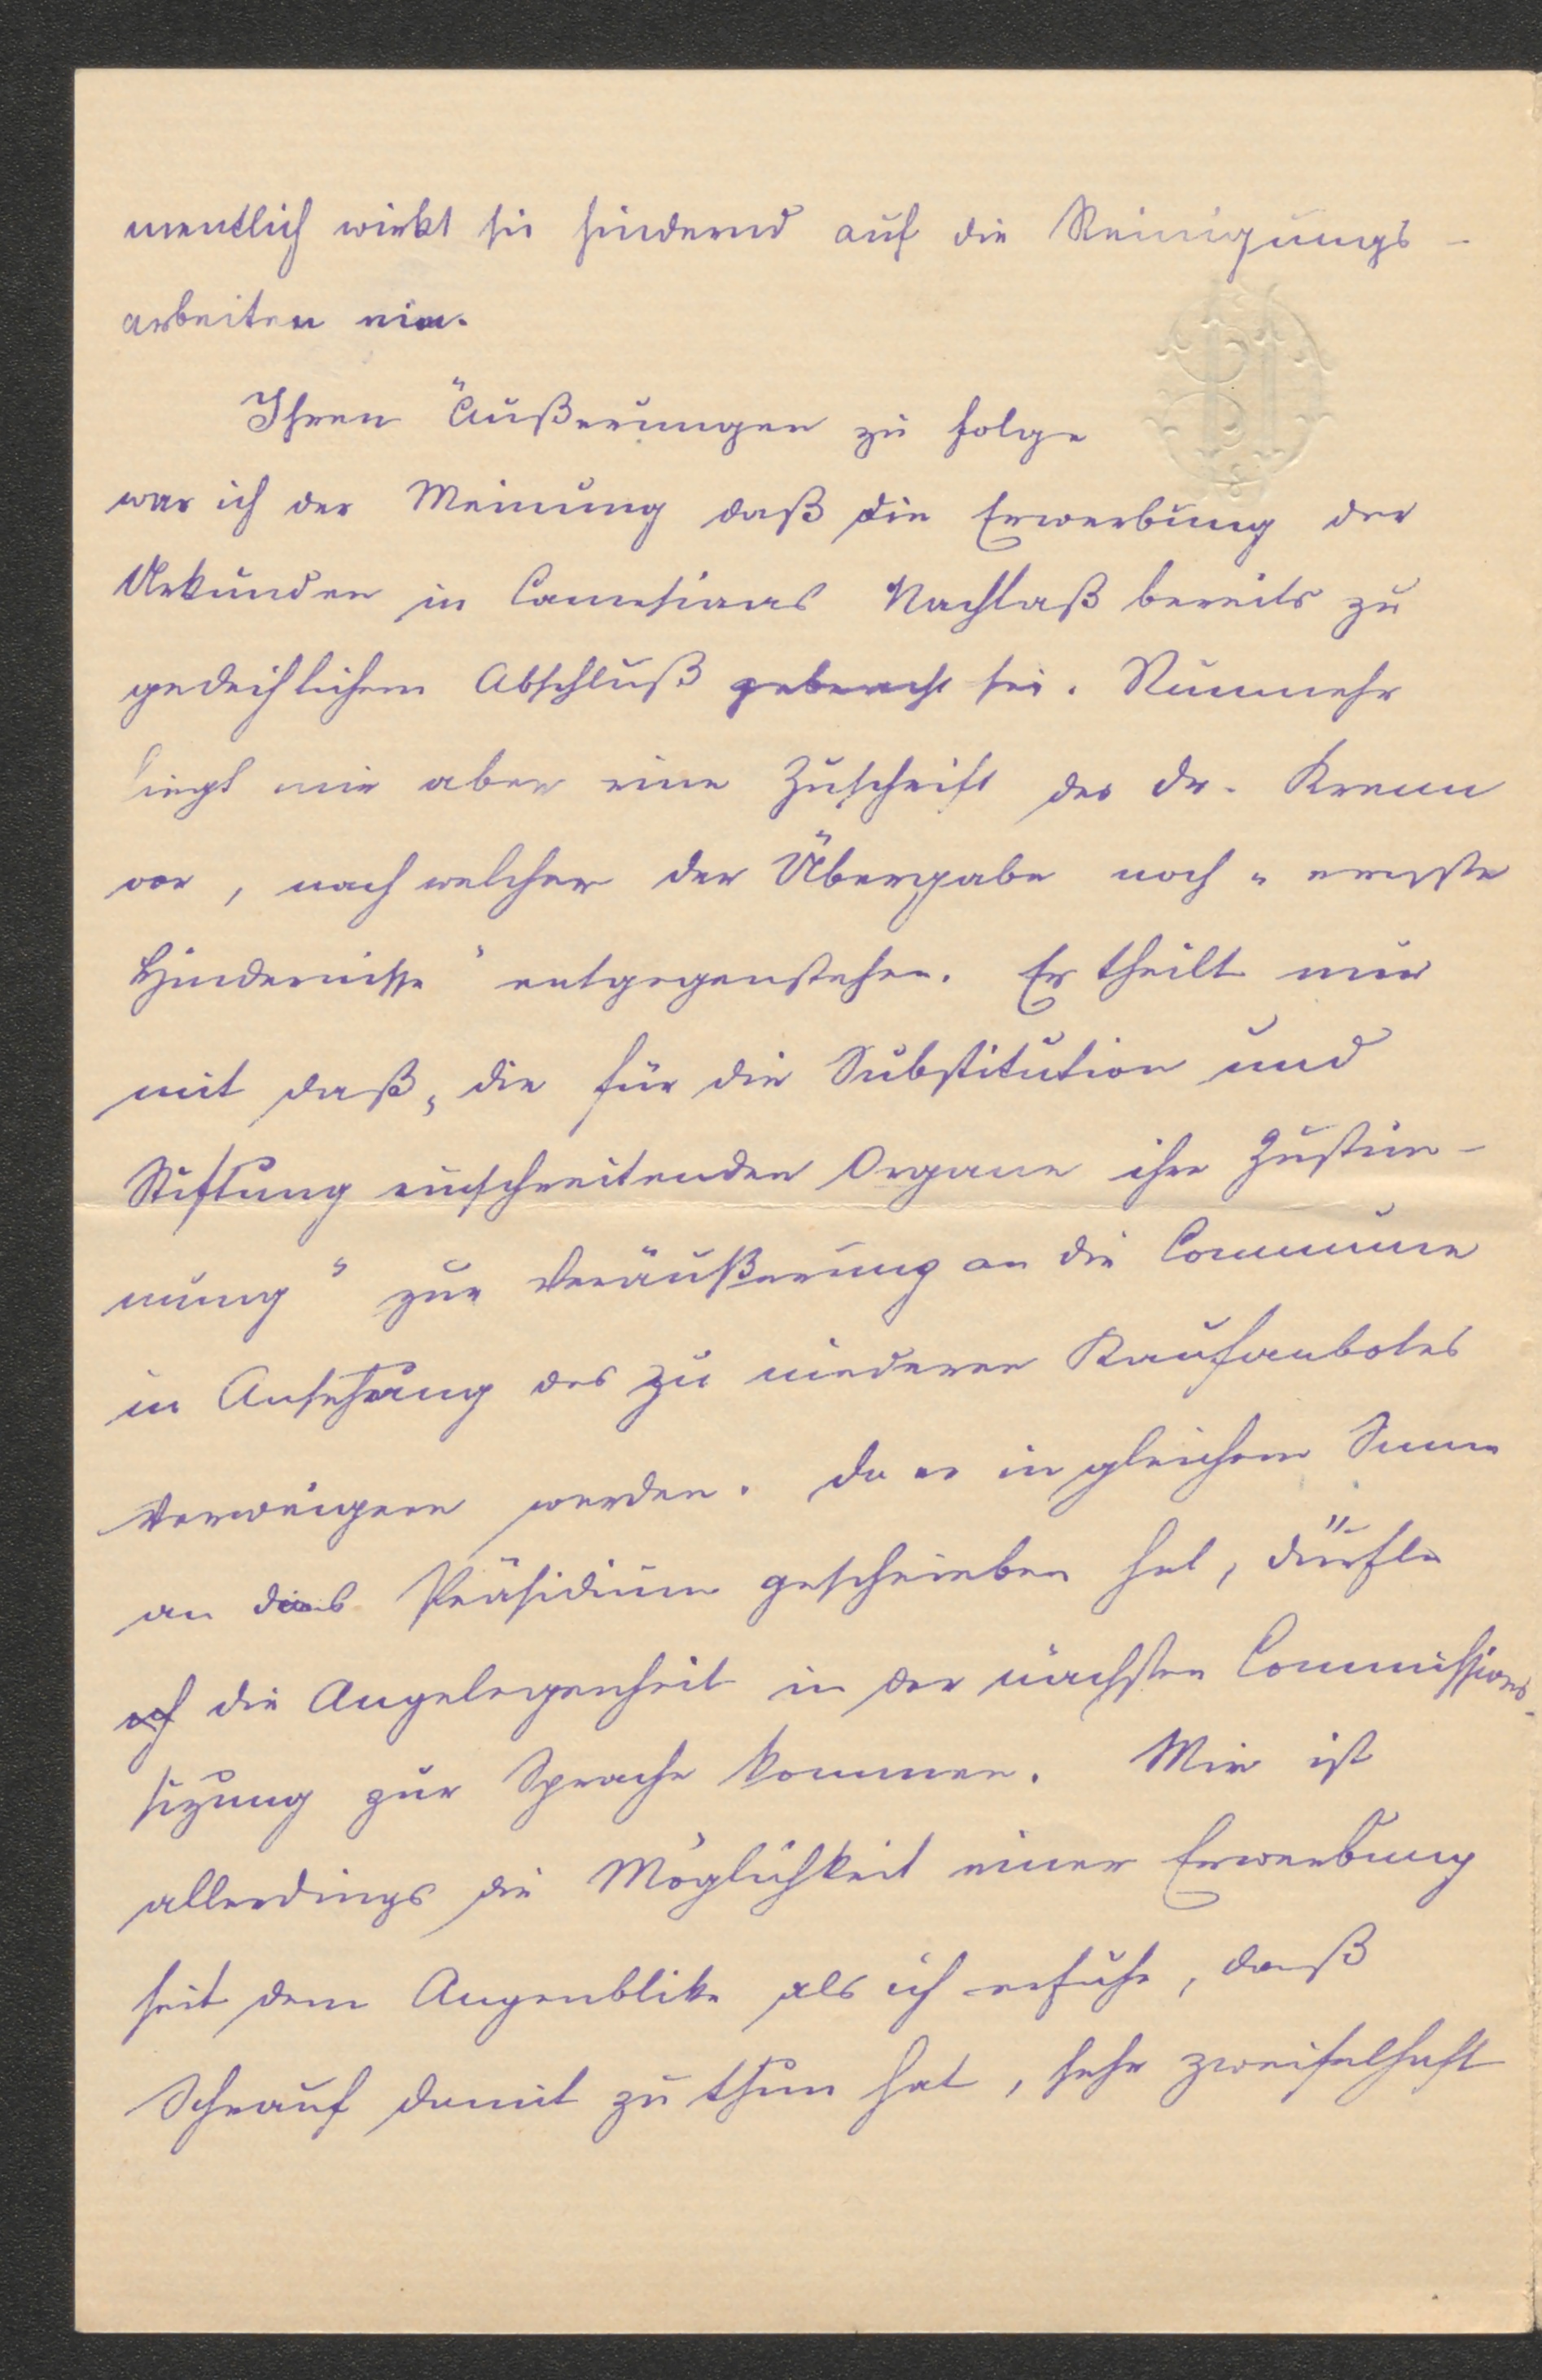 mentlich wirkt sie hindernd auf die Reinigungs-
arbeiten ein.
Ihren Äußerungen zu folge
war ich der Meinung daß die Erwerbung der
Urkunden in Camesinas Nachlaß bereits zu
gedeihlichem Abschluß gebracht sei. Nunmehr
liegt mir aber eine Zuschrift des Dr. Krenn
vor, nach welcher der Übergabe noch „ernste
Hindernisse" entgegenstehen. Er theilt mir
mit daß „die für die Substitution und
Stiftung einschreitenden Organe ihre Zustim-
mung" zur Veräußerung an die Commune
in Ansehung des zu niederen Kaufanbotes
verweigern werden. Da er in gleichem Sinne
an das Präsidium geschrieben hat, dürfte
die Angelegenheit in der nächsten Commissions-
sizung zur Sprache kommen. Mir ist
allerdings die Möglichkeit einer Erwerbung
seit dem Augenblike als ich erfuhr, daß
Schrauf damit zu thun hat, sehr zweifelhaft